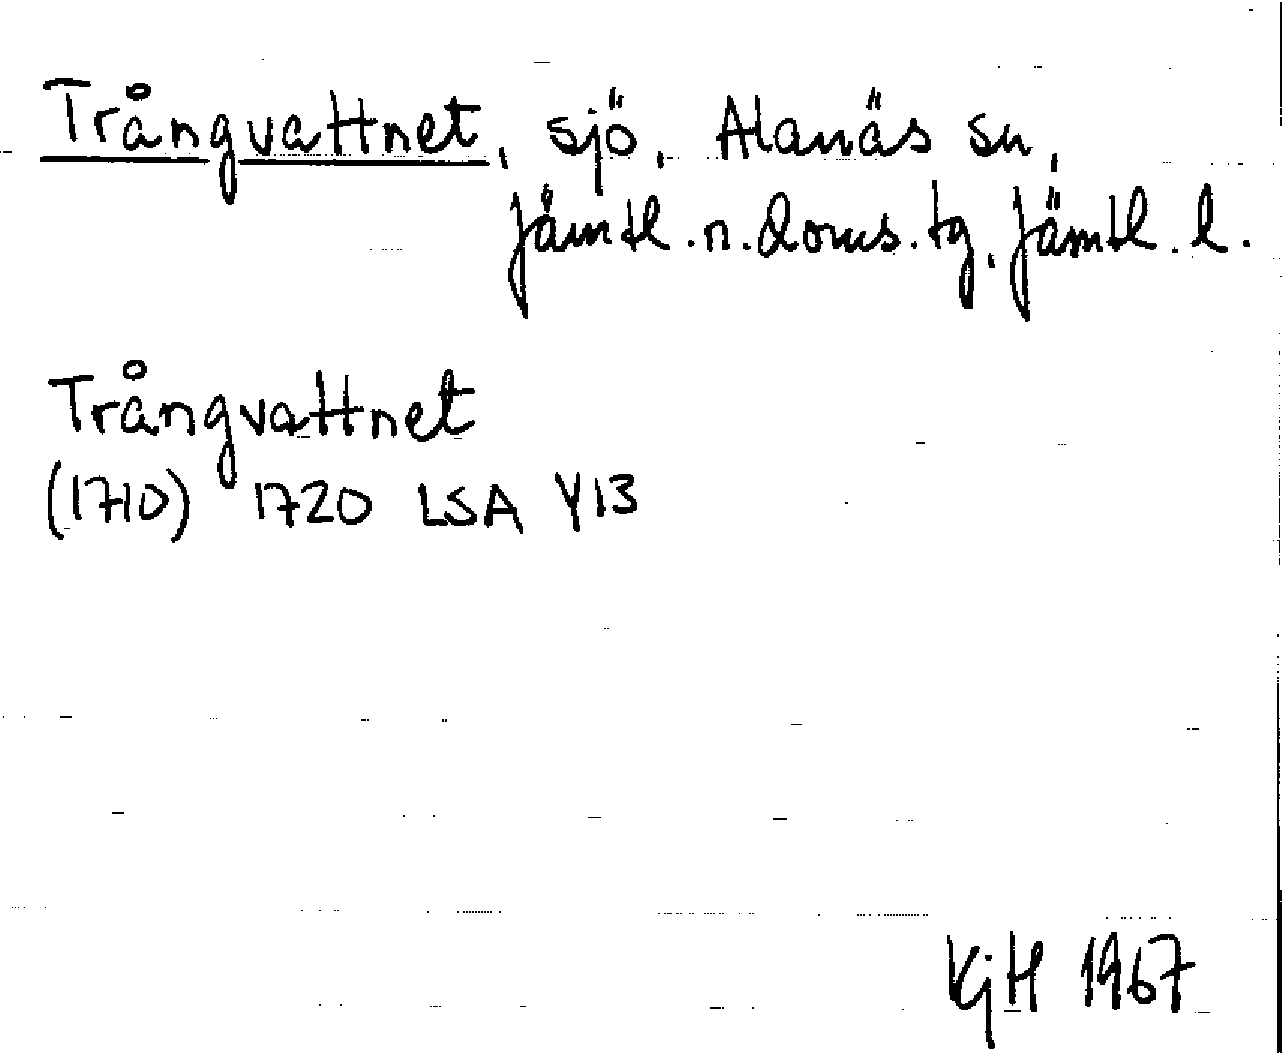 Trångvattnet, sjö, Alanäs sn,
Jämtl. n. doms. tg, Jämtl. l.
Trångvattnet
(1710) 1720 LSA Y13
KjH 1967